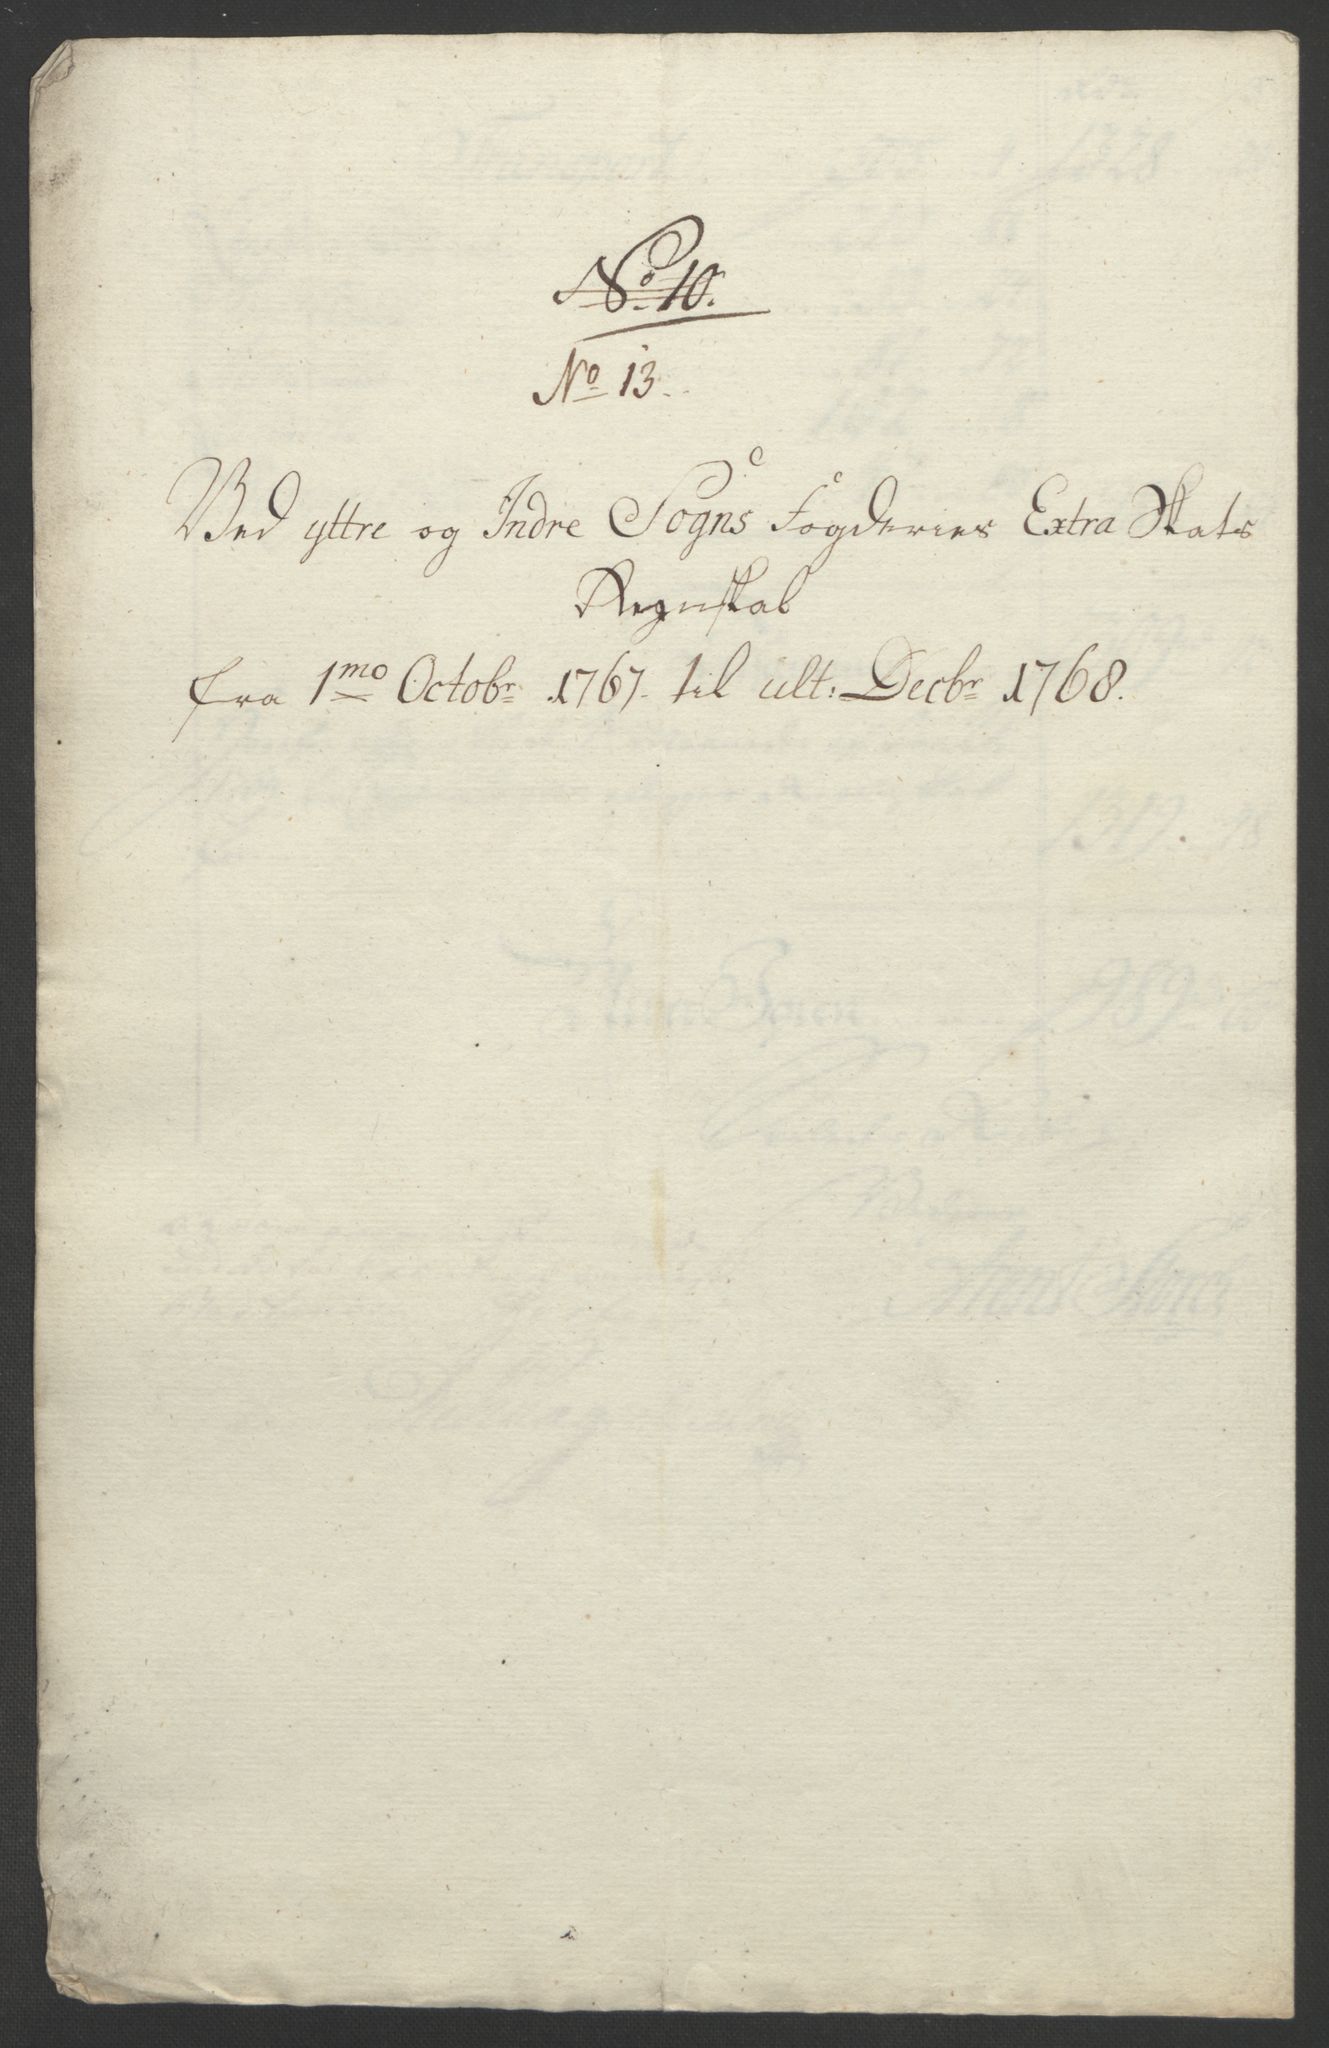 No. 10.
No 13.
Ved yttre og Indre Sogns Fogderies Extra Skats
Regnskab
fra 1mo Octobr 1767. til ult: Decbr 1768.